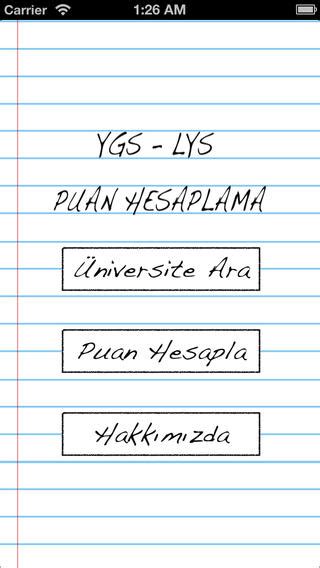 Carrier 1:26 AM
YGS - LYS
PUAN HESAPLAMA
Üniversite Ara
Puan Hesapla
Hakkımızda